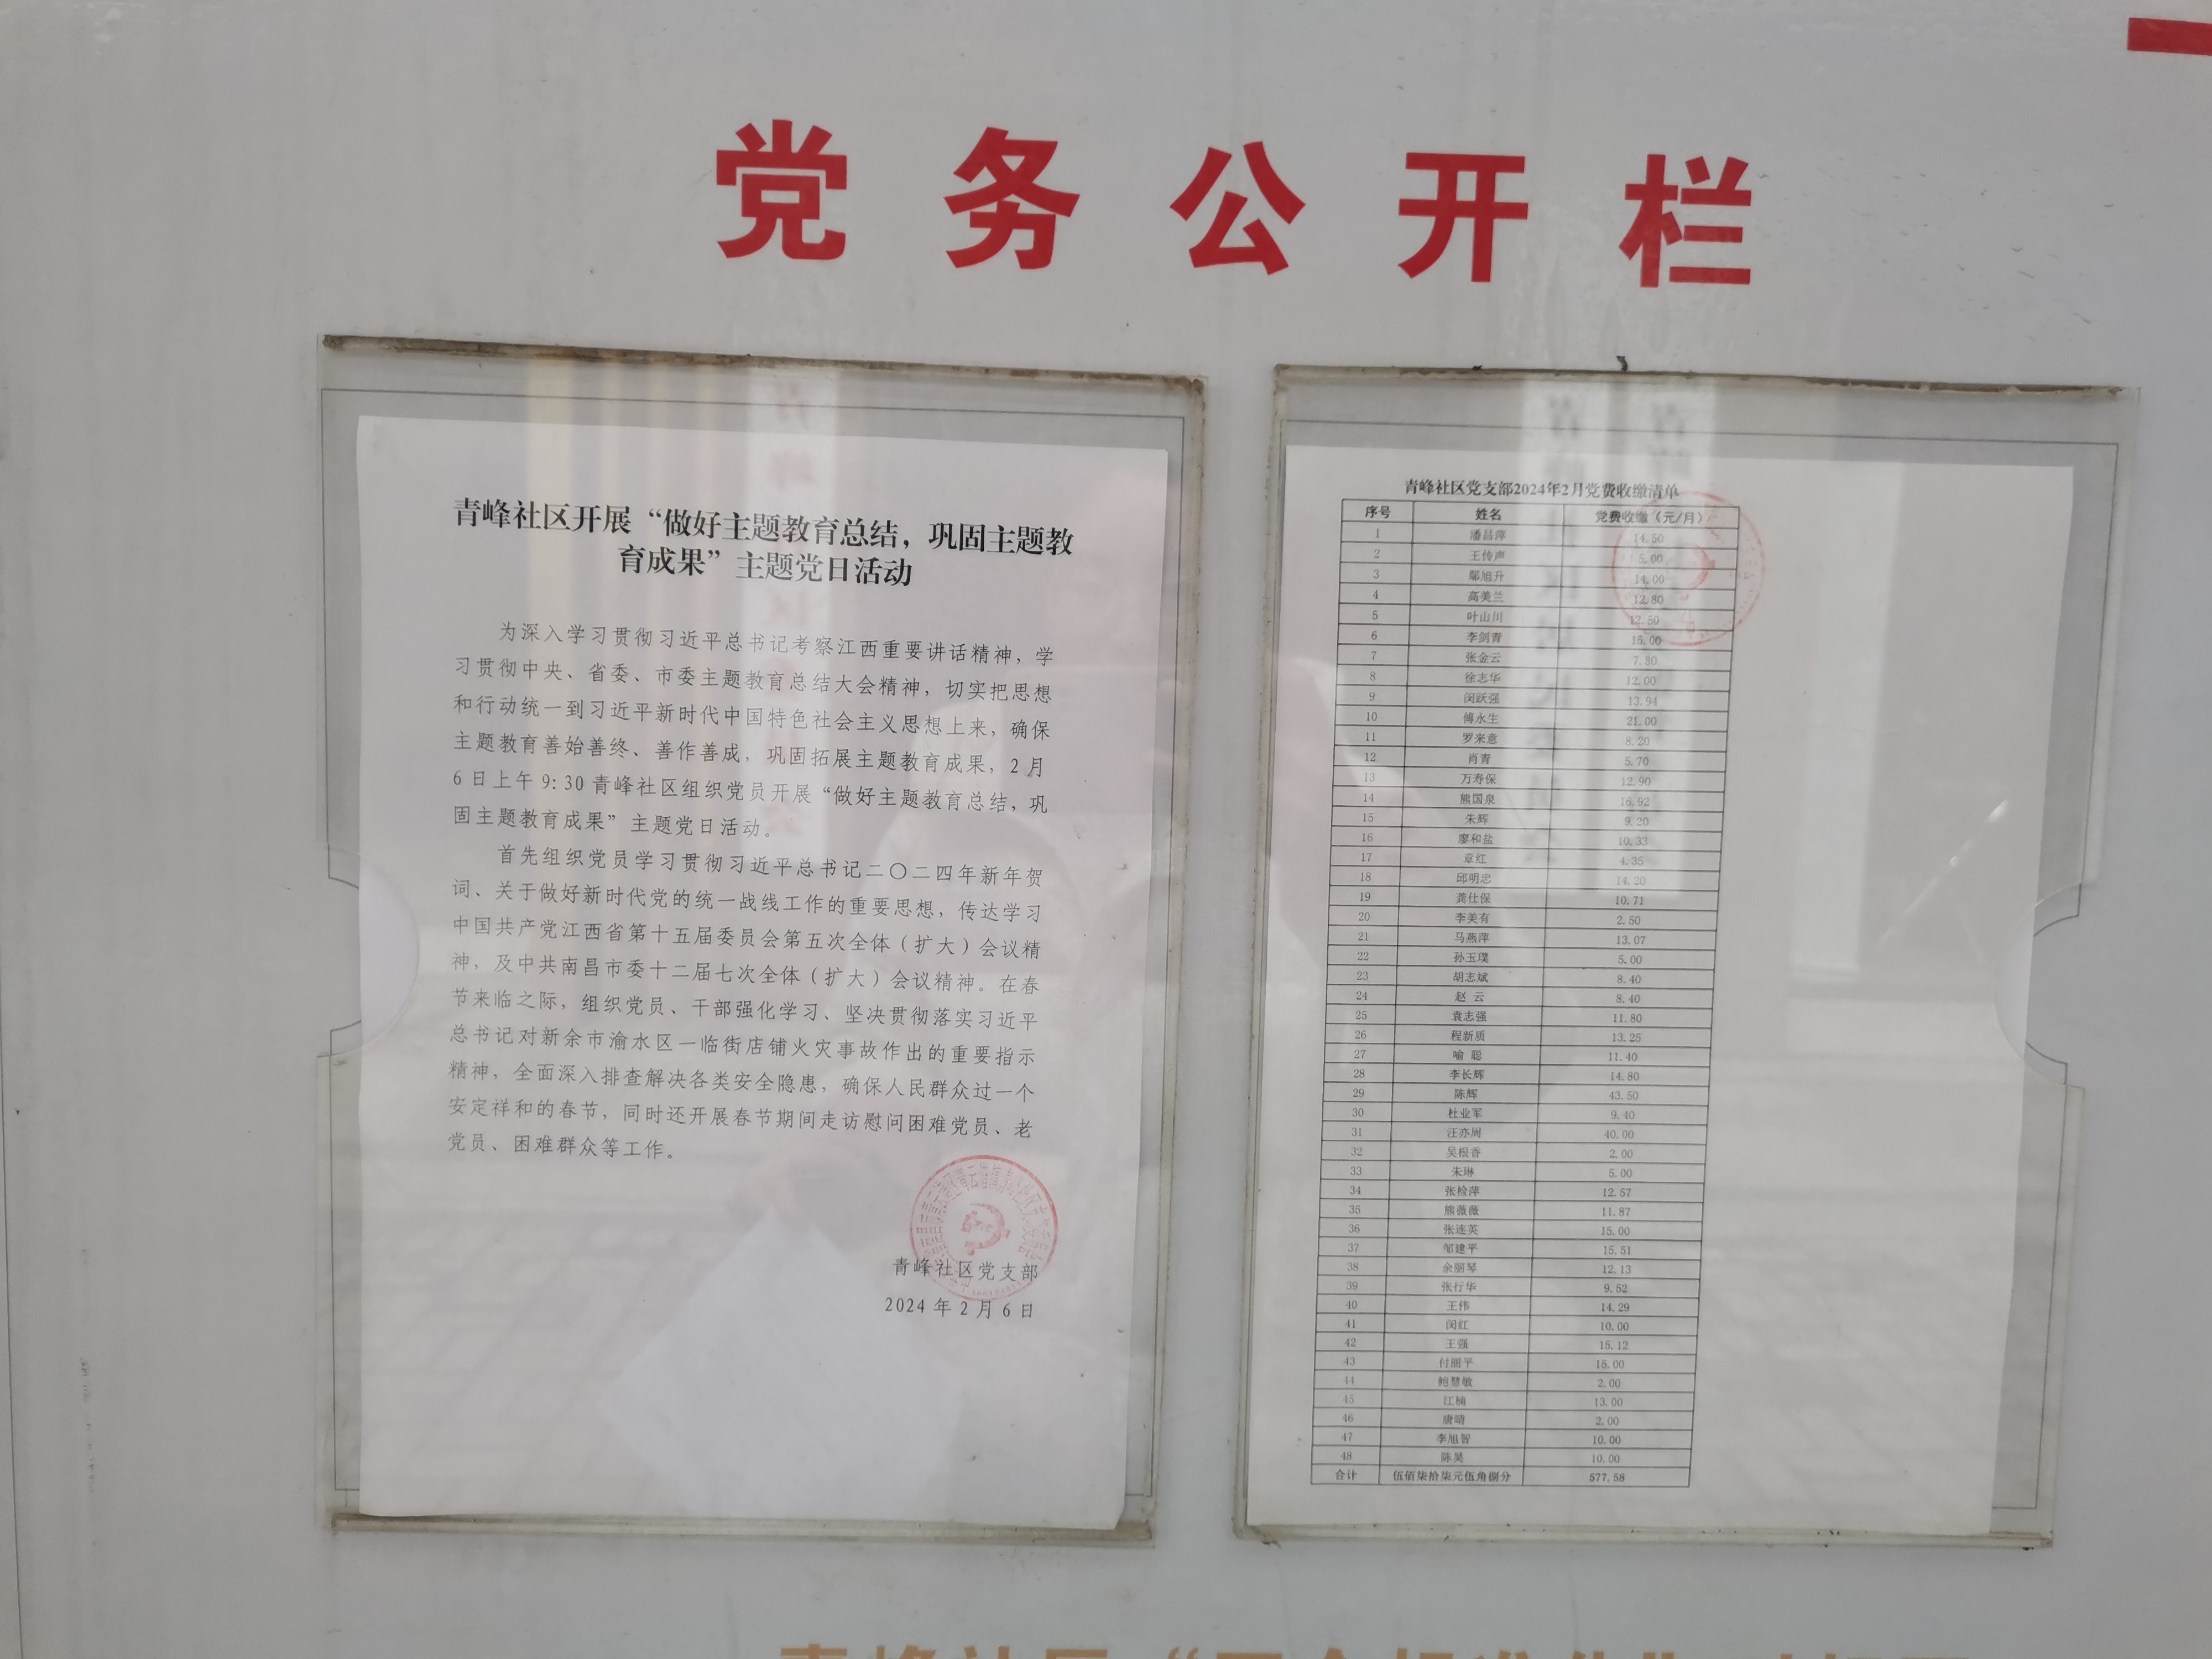 党务公开栏
青峰社区开展“做好主题教育总结，巩固主题教
育成果”主题党日活动
为深入学习贯彻习近平总书记考察江西重要讲话精神，学
习贯彻中央、省委、市委主题教育总结大会精神，切实把思想
和行动统一到习近平新时代中国特色社会主义思想上来，确保
主题教育善始善终、善作善成，巩固拓展主题教育成果，2月
6日上午9:30青峰社区组织党员开展“做好主题教育总结，巩
固主题教育成果”主题党日活动。
首先组织党员学习贯彻习近平总书记二〇二四年新年贺
词、关于做好新时代党的统一战线工作的重要思想，传达学习
中国共产党江西省第十五届委员会第五次全体（扩大）会议精
神，及中共南昌市委十二届七次全体（扩大）会议精神。在春
节来临之际，组织党员、干部强化学习、坚决贯彻落实习近平
总书记对新余市渝水区一临街店铺火灾事故作出的重要指示
精神，全面深入排查解决各类安全隐患，确保人民群众过一个
安定祥和的春节，同时还开展春节期间走访慰问困难党员、老
党员、困难群众等工作。
青峰社区党支部
2024年2月6日
青峰社区党支部2024年2月党费收缴清单
序号 姓名 党费收缴（元/月）
1 潘昌萍 14.50
2 王传声 5.00
3 鄢旭升 14.00
4 高美兰 12.80
5 叶山川 12.50
6 李剑青 15.00
7 张金云 7.80
8 徐志华 12.00
9 闵跃强 13.94
10 傅永生 21.00
11 罗来意 8.20
12 肖青 5.70
13 万寿保 12.90
14 熊国泉 16.92
15 朱辉 9.20
16 廖和盐 10.33
17 章红 4.35
18 邱明忠 14.20
19 龚仕保 10.71
20 李美有 2.50
21 马燕萍 13.07
22 孙玉璞 5.00
23 胡志斌 8.40
24 赵 云 8.40
25 袁志强 11.80
26 程新质 13.25
27 喻 聪 11.40
28 李长辉 14.80
29 陈辉 43.50
30 杜业军 9.40
31 汪亦周 40.00
32 吴根香 2.00
33 朱琳 5.00
34 张检萍 12.57
35 熊薇薇 11.87
36 张连英 15.00
37 邹建平 15.51
38 余丽琴 12.13
39 张行华 9.52
40 王伟 14.29
41 闵红 10.00
42 王强 15.12
43 付丽平 15.00
44 鲍慧敏 2.00
45 江楠 13.00
46 唐晴 2.00
47 李旭智 10.00
48 陈昊 10.00
合计 伍佰柒拾柒元伍角捌分 577.58